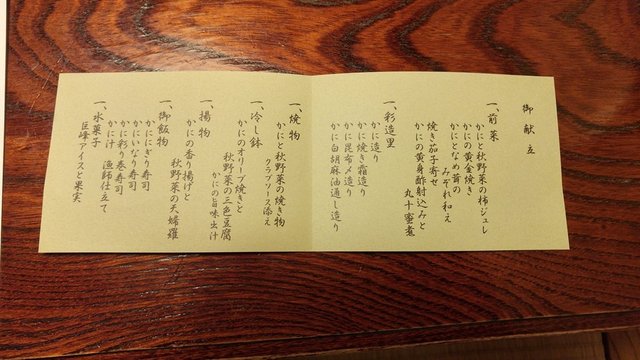 御献立
一、前菜
かにと秋野菜の柿ジュレ
かにの黄金焼き
かにとなめ茸の
みぞれ和え
焼き茄子寄せ
かにの黄身酢射込みと
丸十蜜煮
一、彩造里
かに造り
かに焼き霜造り
かに昆布〆造り
かに白胡麻油通し造り
一、焼物
かにと秋野菜の焼き物
クラブソース添え
一、冷し鉢
かにのオリーブ焼きと
秋野菜の三色豆腐
かにの旨味出汁
一、揚物
かにの香り揚げと
秋野菜の天婦羅
一、御飯物
かににぎり寿司
かにいなり寿司
かに彩り巻寿司
かに汁 漁師仕立て
一、水菓子
巨峰アイスと果実